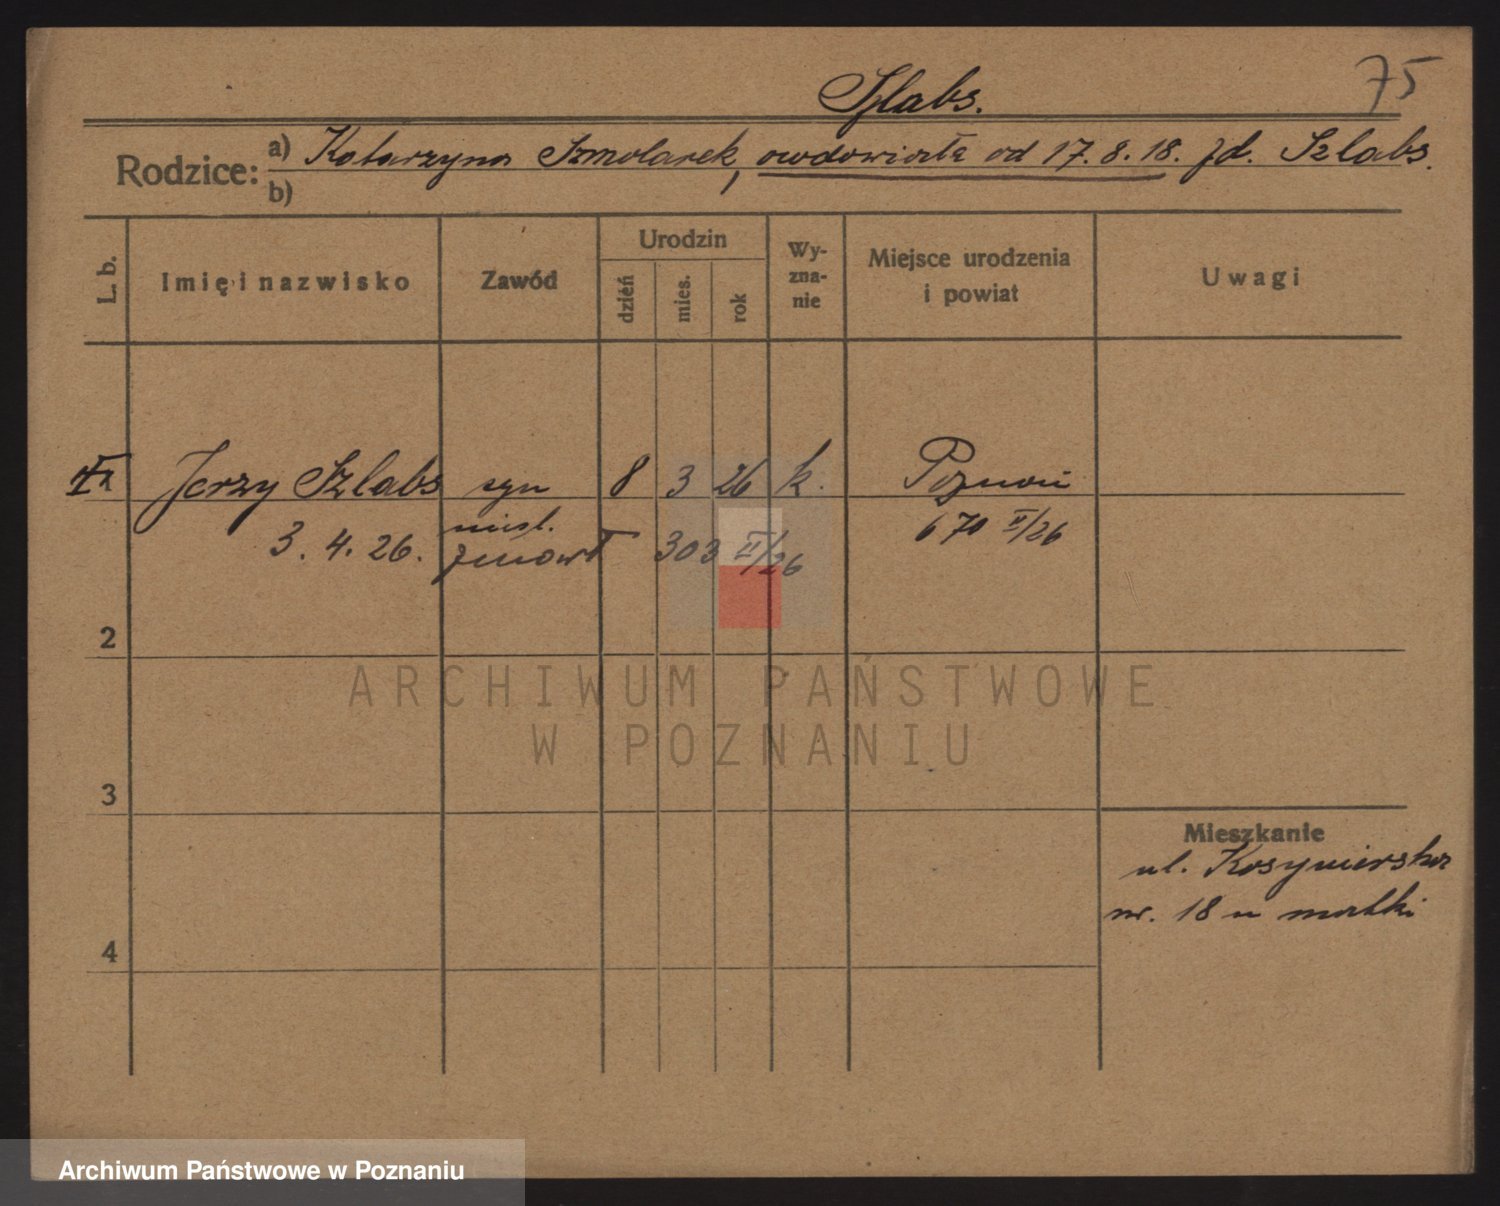 Szlabs.
75
Rodzice:
a) Katarzyna Szmolarek, owdowiała od 17.8.18. zd. Szlabs.
b)
L. b.
Imię i nazwisko
Zawód
Urodzin
dzień
mies.
rok
Wy-
zna-
nie
Miejsce urodzenia
i powiat
Uwagi
Jerzy Szlabs syn 8 3 26 k. Poznań
3. 4. 26. nieśl. zmarł 303 II/26
670 II/26
2
3
4
Mieszkanie
ul. Kosynierska
nr. 18 u matki
ARCHIWUM PAŃSTWOWE
W POZNANIU
Archiwum Państwowe w Poznaniu